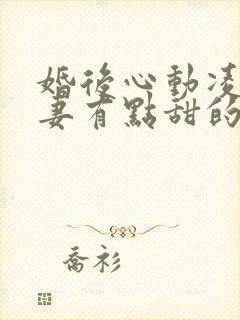 婚後心動凌
妻有點甜的
喬衫